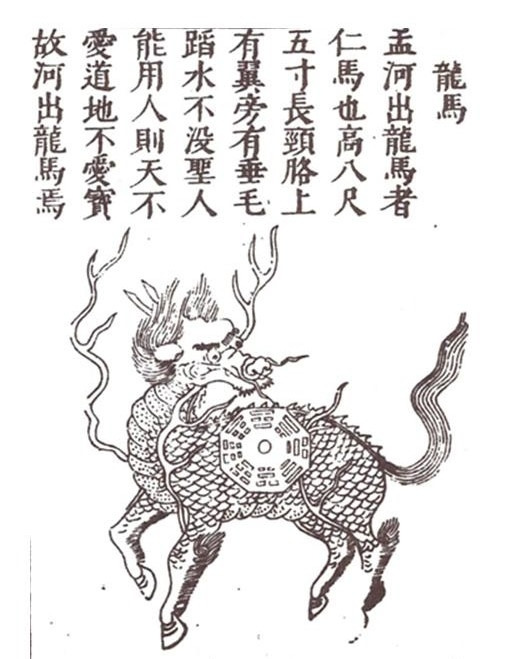 龍馬
孟河出龍馬者
仁馬也高八尺
五寸長頸骼上
有翼旁有垂毛
蹈水不没聖人
能用人則天不
愛道地不愛寶
故河出龍馬焉